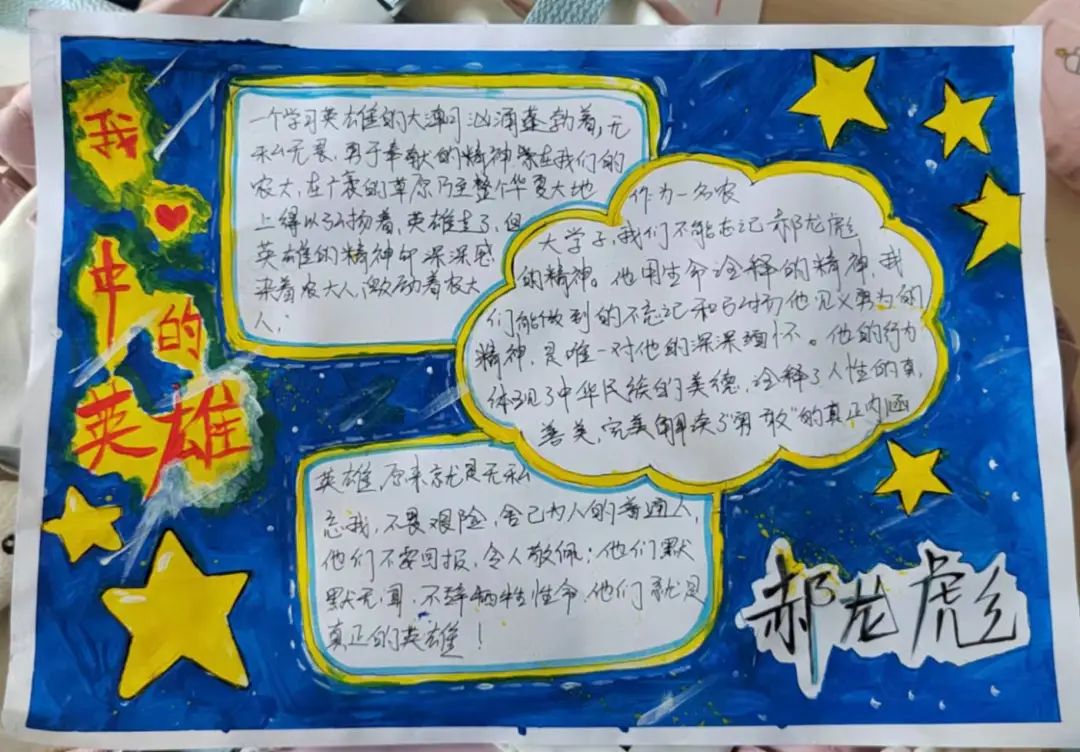 我
心
中
的
英雄
一个学习英雄的大潮汹涌蓬勃着,无
私无畏,勇于奉献的精神紧在我们的
农大,在广袤的草原乃至整个华夏大地
上得以弘扬着,英雄走了,但
英雄的精神却深深感
染着农大人,激励着农大
人;
作为一名农
大学子,我们不能忘记郝龙彪
的精神。他用生命诠释的精神,我
们能做到的不忘记和
他见义勇为的
精神,是唯一对他的深深缅怀。他的行为
体现了中华民族的美德,诠释了人性的真,
善美,完美解读了"勇敢"的真正内涵
英雄,原来就是无私
忘我,不畏艰险,舍己为人的普通人,
他们不要回报,令人敬佩;他们默
默无闻,不辞牺牲性命,他们就是
真正的英雄!
郝龙彪